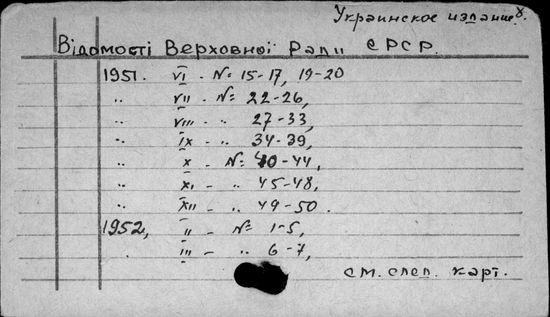 Украинское издание 8.
Відомості Верховної Ради СРСР.
1951. VI - №= 15-17, 19-20
" VII - №= 22-26,
" VIII - " 27-33,
" IX - " 34-39,
" X - №= 40-44,
" XI - " 45-48,
" XII - " 49-50.
1952, II - №= 1-5,
" III - " 6-7,
см. след. карт.